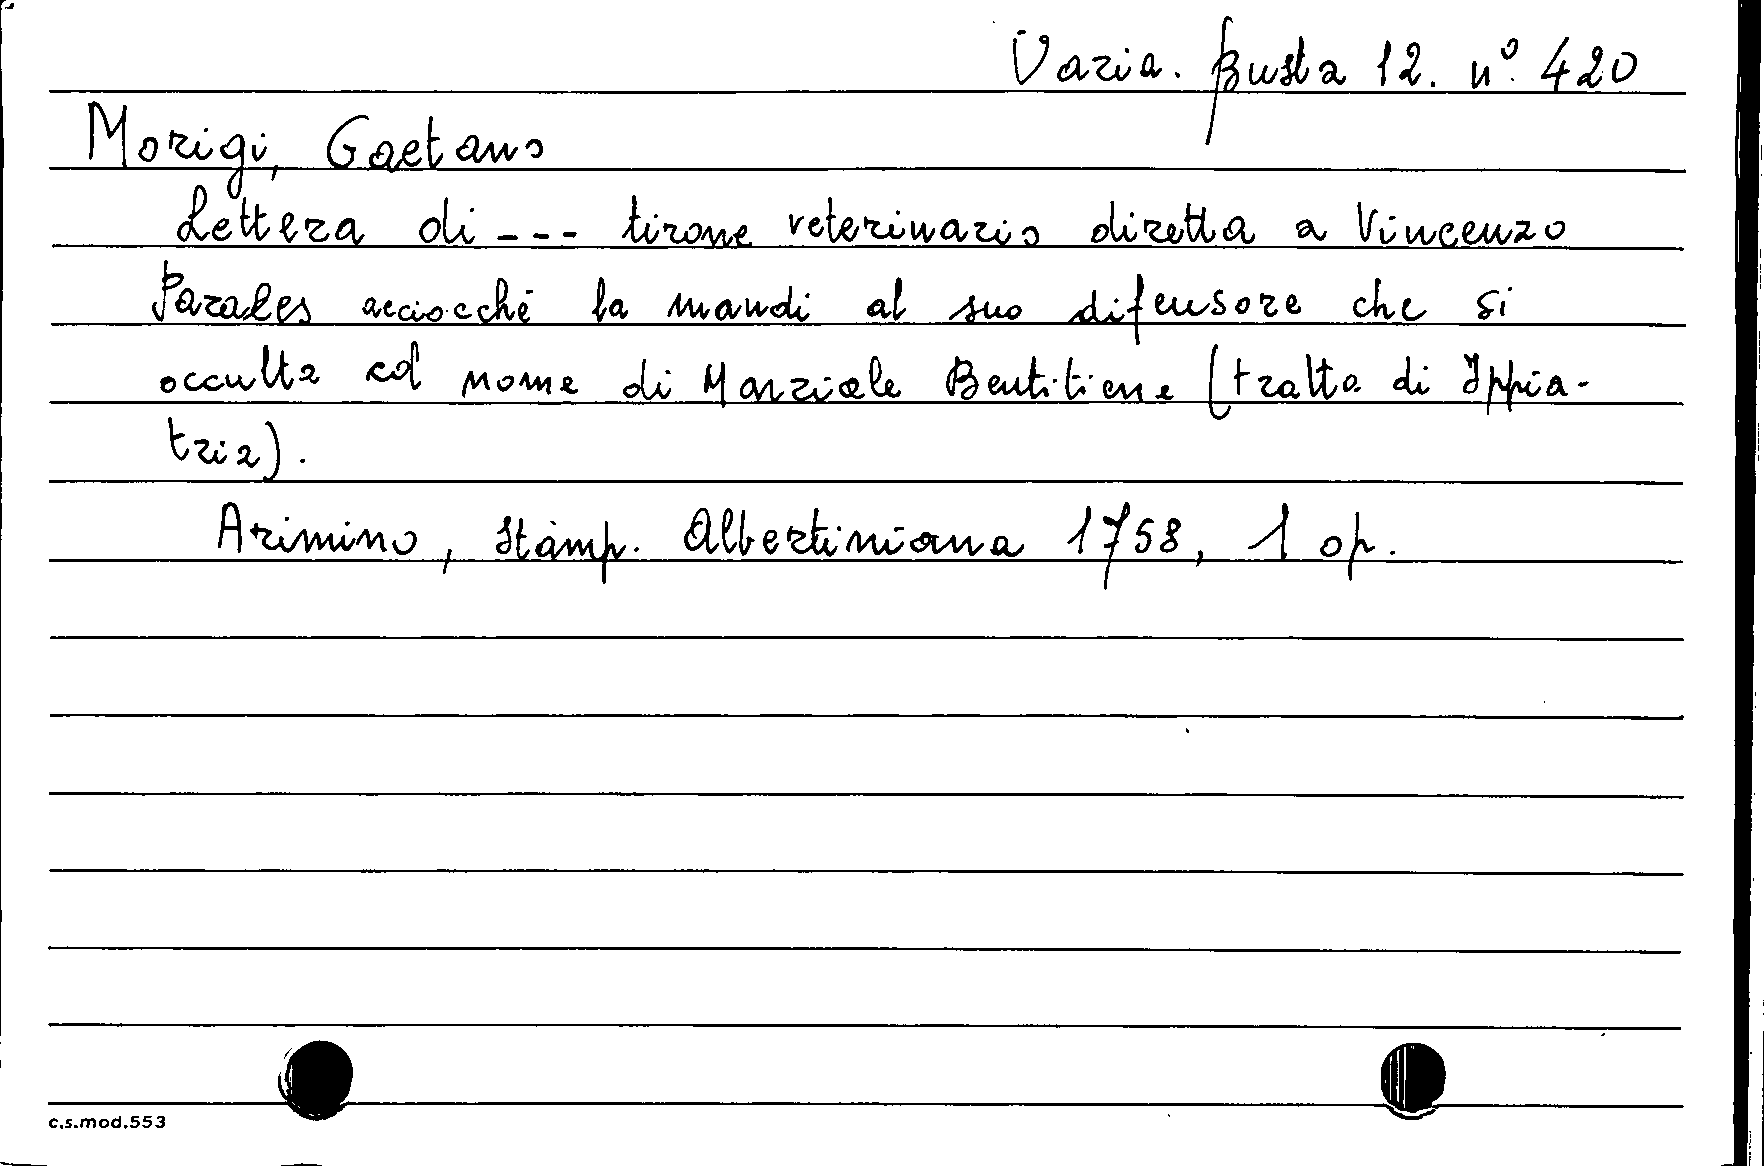 Varia. Busta 12. nº. 420
Morigi, Gaetano
Lettera di --- tirone veterinario diretta a Vincenzo
Parales acciocché la mandi al suo difensore che si
occulta col nome di Marziale Bentitiene (tratta di Ippia-
tria).
Arimino, Stamp. Albertiniana 1758, 1 op.
c.s.mod.553